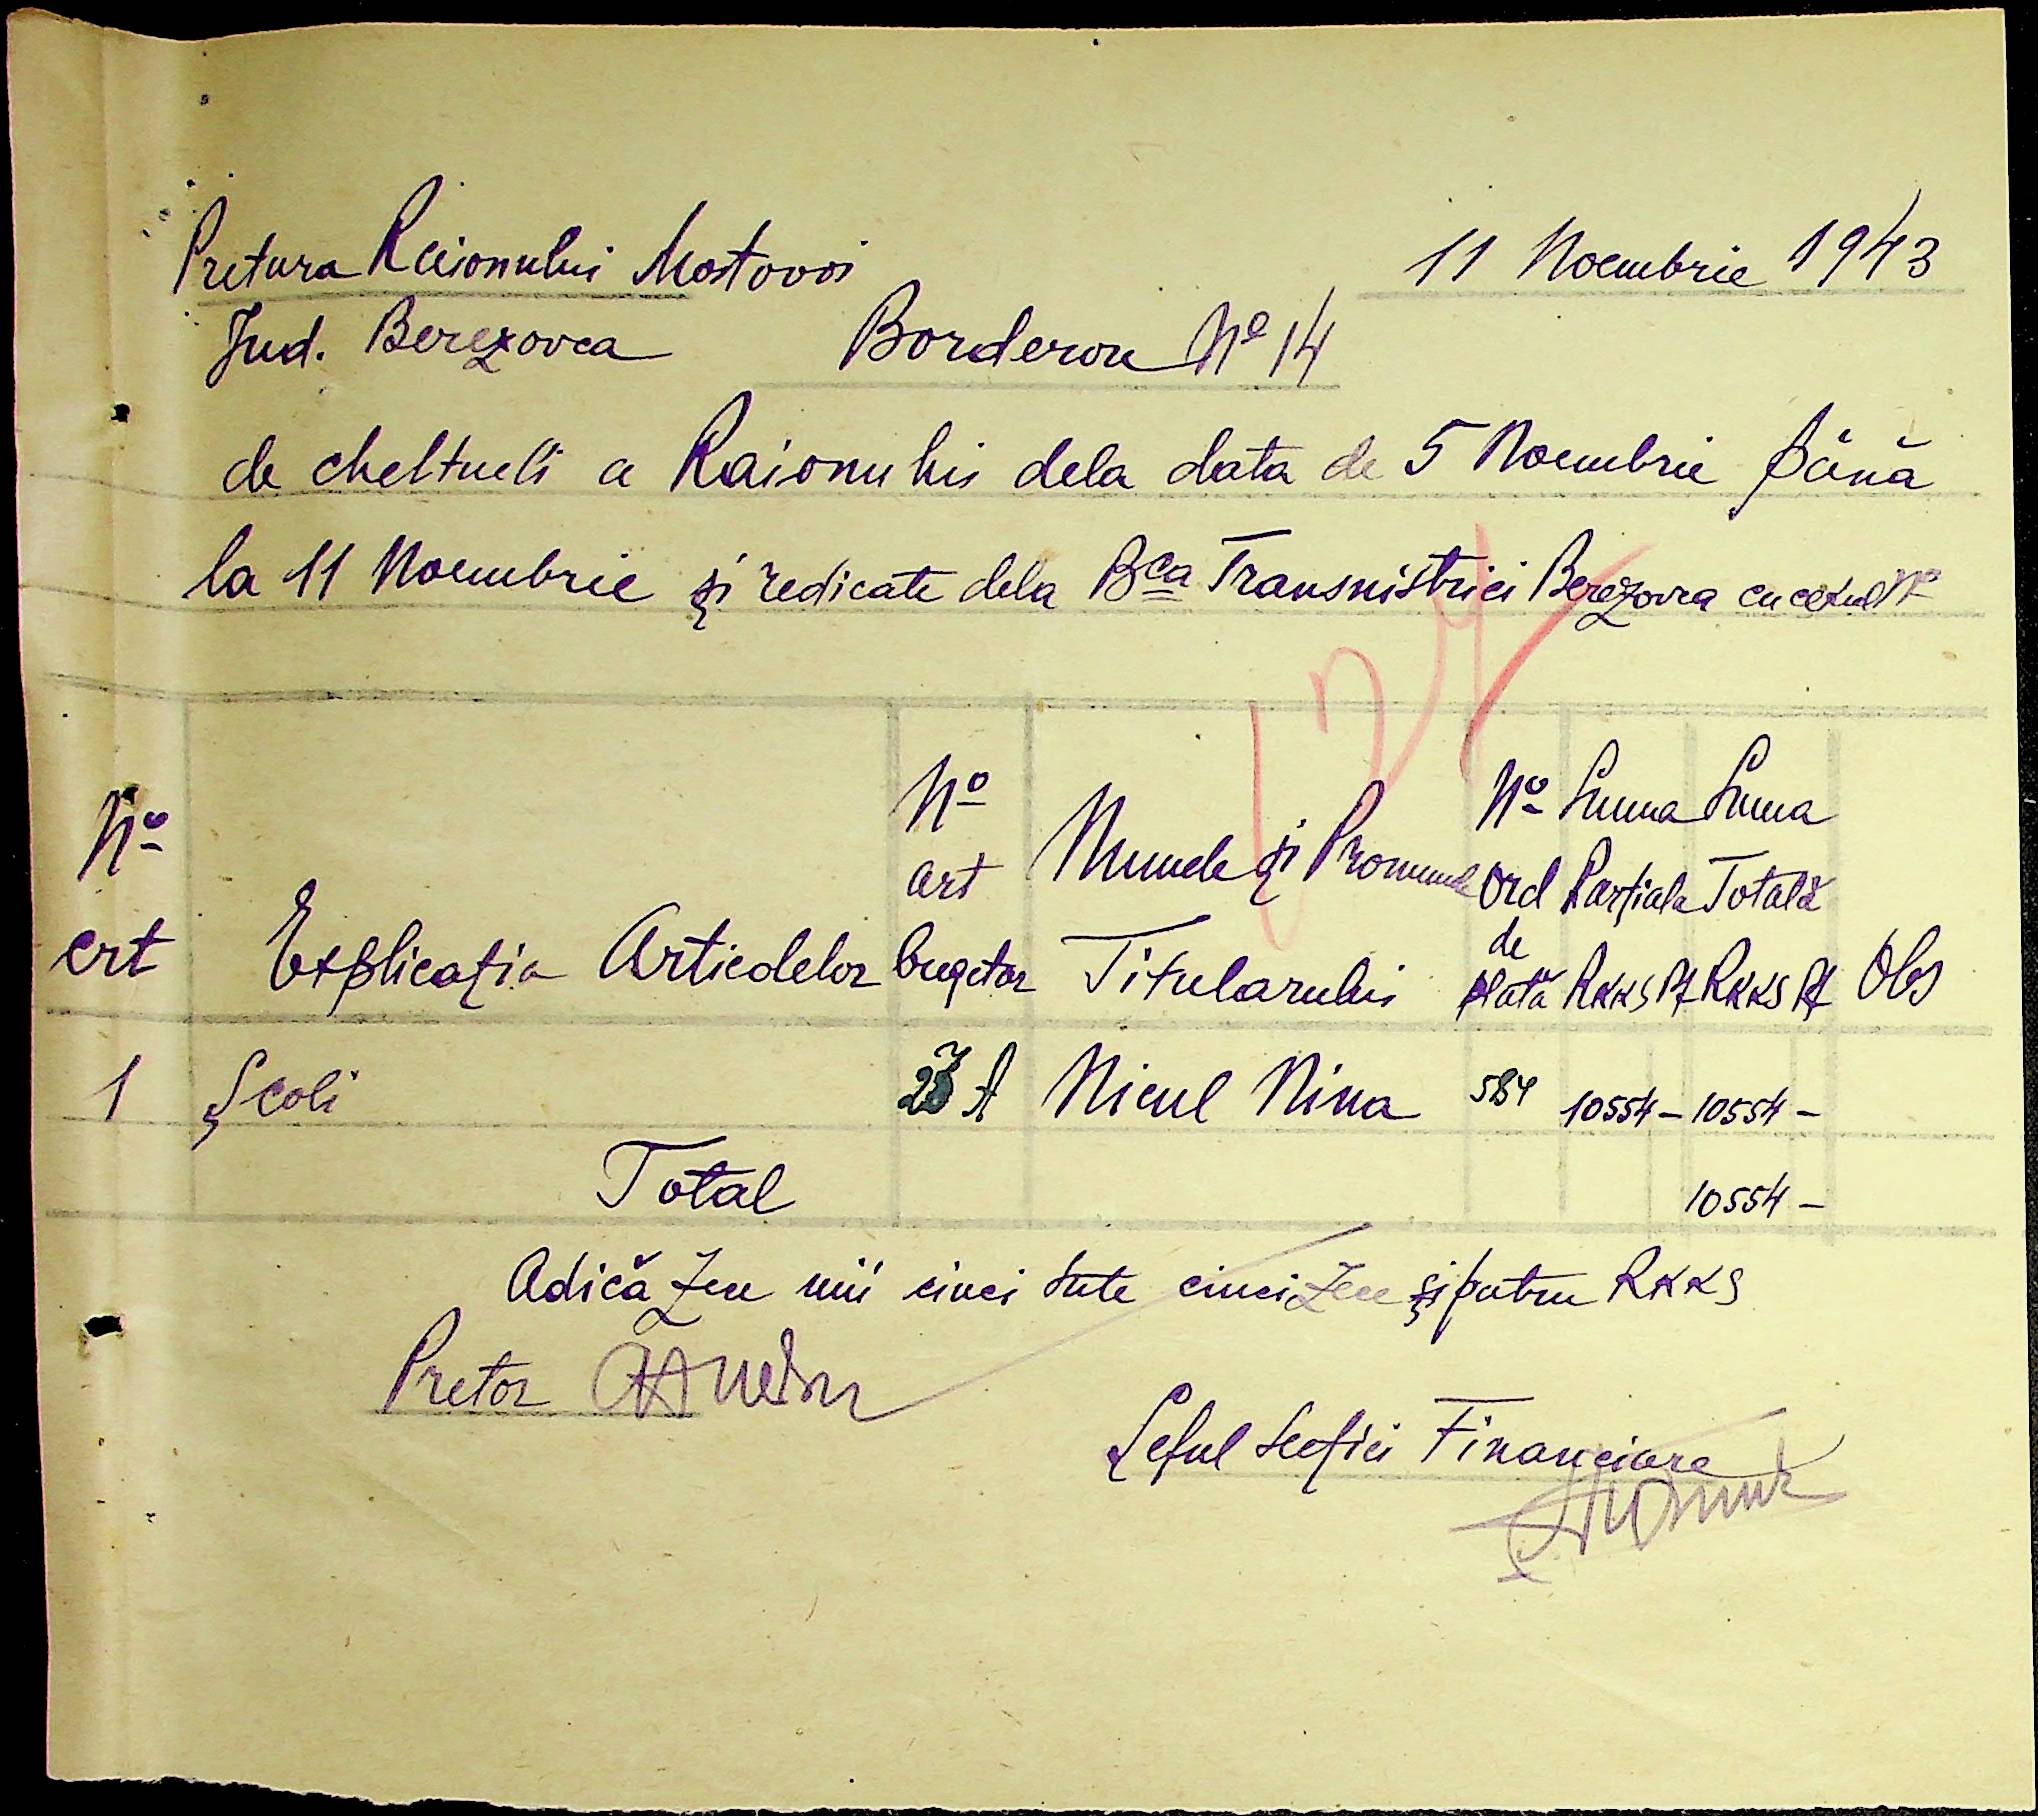 Pretura Raionului Mostovoi
11 Noembrie 1943
Jud. Berezovca
Borderou Nº 14
de cheltueli a Raionului dela data de 5 Noembrie până
la 11 Noembrie și redicate dela Bca Transnistriei Berezovca cu cekul Nº
Nº crt
Explicația Articolelor
Nº art bugetar
Numele și Pronumele Titularului
Nº Ord de plată
Suma Parțiala RKKS Pf
Suma Totală RKKS Pf
Obs
1 Școli A Nicul Nina 584 10554 - 10554 -
Total 10554 -
Adică zece mii cinci sute cincizeci și patru RKKS
Pretor
Șeful Secției Financiare